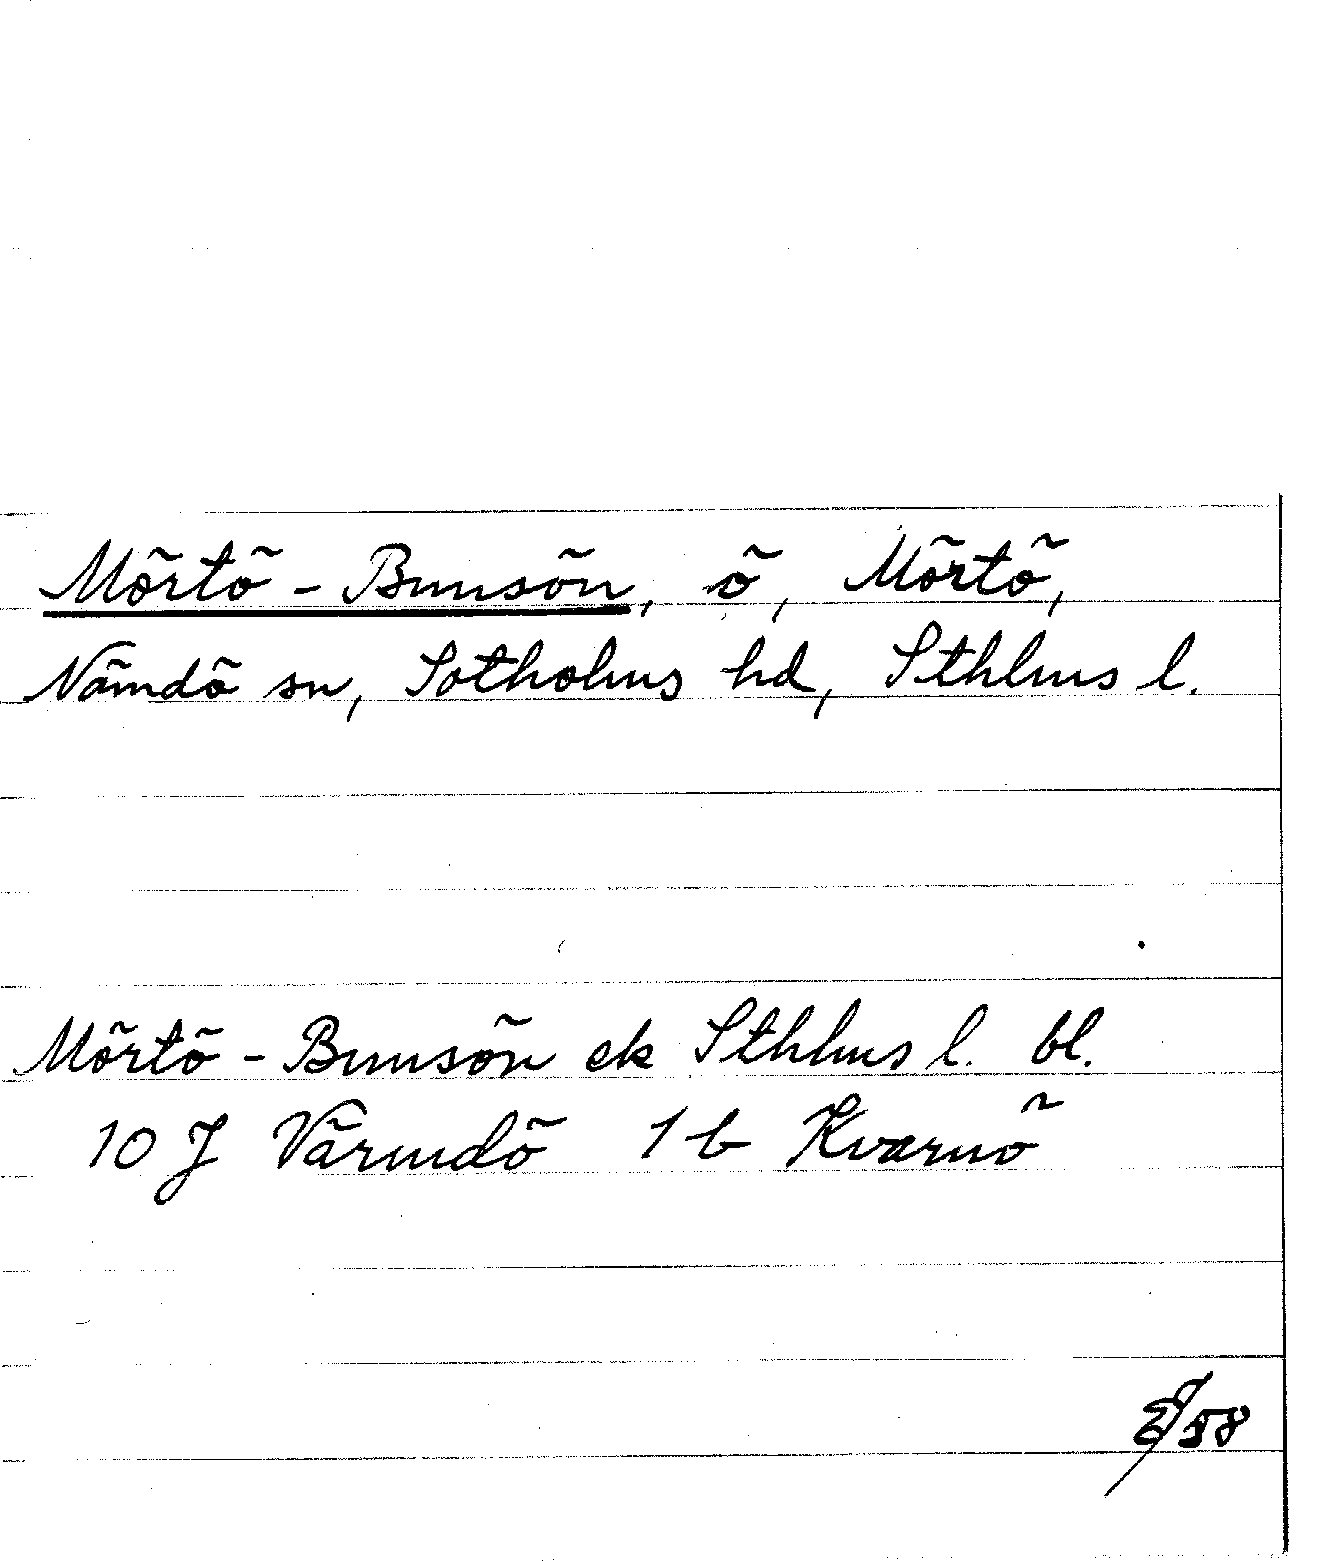 Mörtö-Bunsön, ö, Mörtö,
Nämdö sn, Sotholms hd, Sthlms l.
Mörtö-Bunsön ek Sthlms l. bl.
10 J Värmdö 1 b Kvarnö
/58